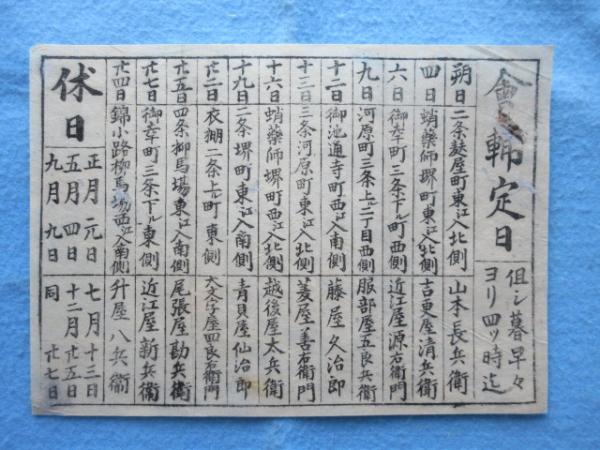 會輪定日
但シ暮早々
ヨリ四ツ時迄
朔日 二条麩屋町東江入北側 山本長兵衛
四日 蛸薬師堺町東江入北側 吉更屋清兵衛
六日 御幸町三条下ル町西側 近江屋源右衛門
九日 河原町三条上ル二丁目西側 服部屋五良兵衛
十二日 御池通寺町西江入南側 藤屋久治郎
十三日 三条河原町東江入北側 菱屋善右衛門
十六日 蛸薬師堺町西江入北側 越後屋太兵衛
十九日 二条堺町東江入南側 青貝屋仙治郎
廿二日 衣棚二条上ル町東側 大文字屋四良右衛門
廿五日 四条柳馬場東江入南側 尾張屋勘兵衛
廿七日 御幸町三条下ル東側 近江屋新兵衛
廿四日 錦小路柳馬場西江入南側 升屋八兵衛
休日
正月元日 七月十三日
五月四日 十二月廿五日
九月九日 同廿七日